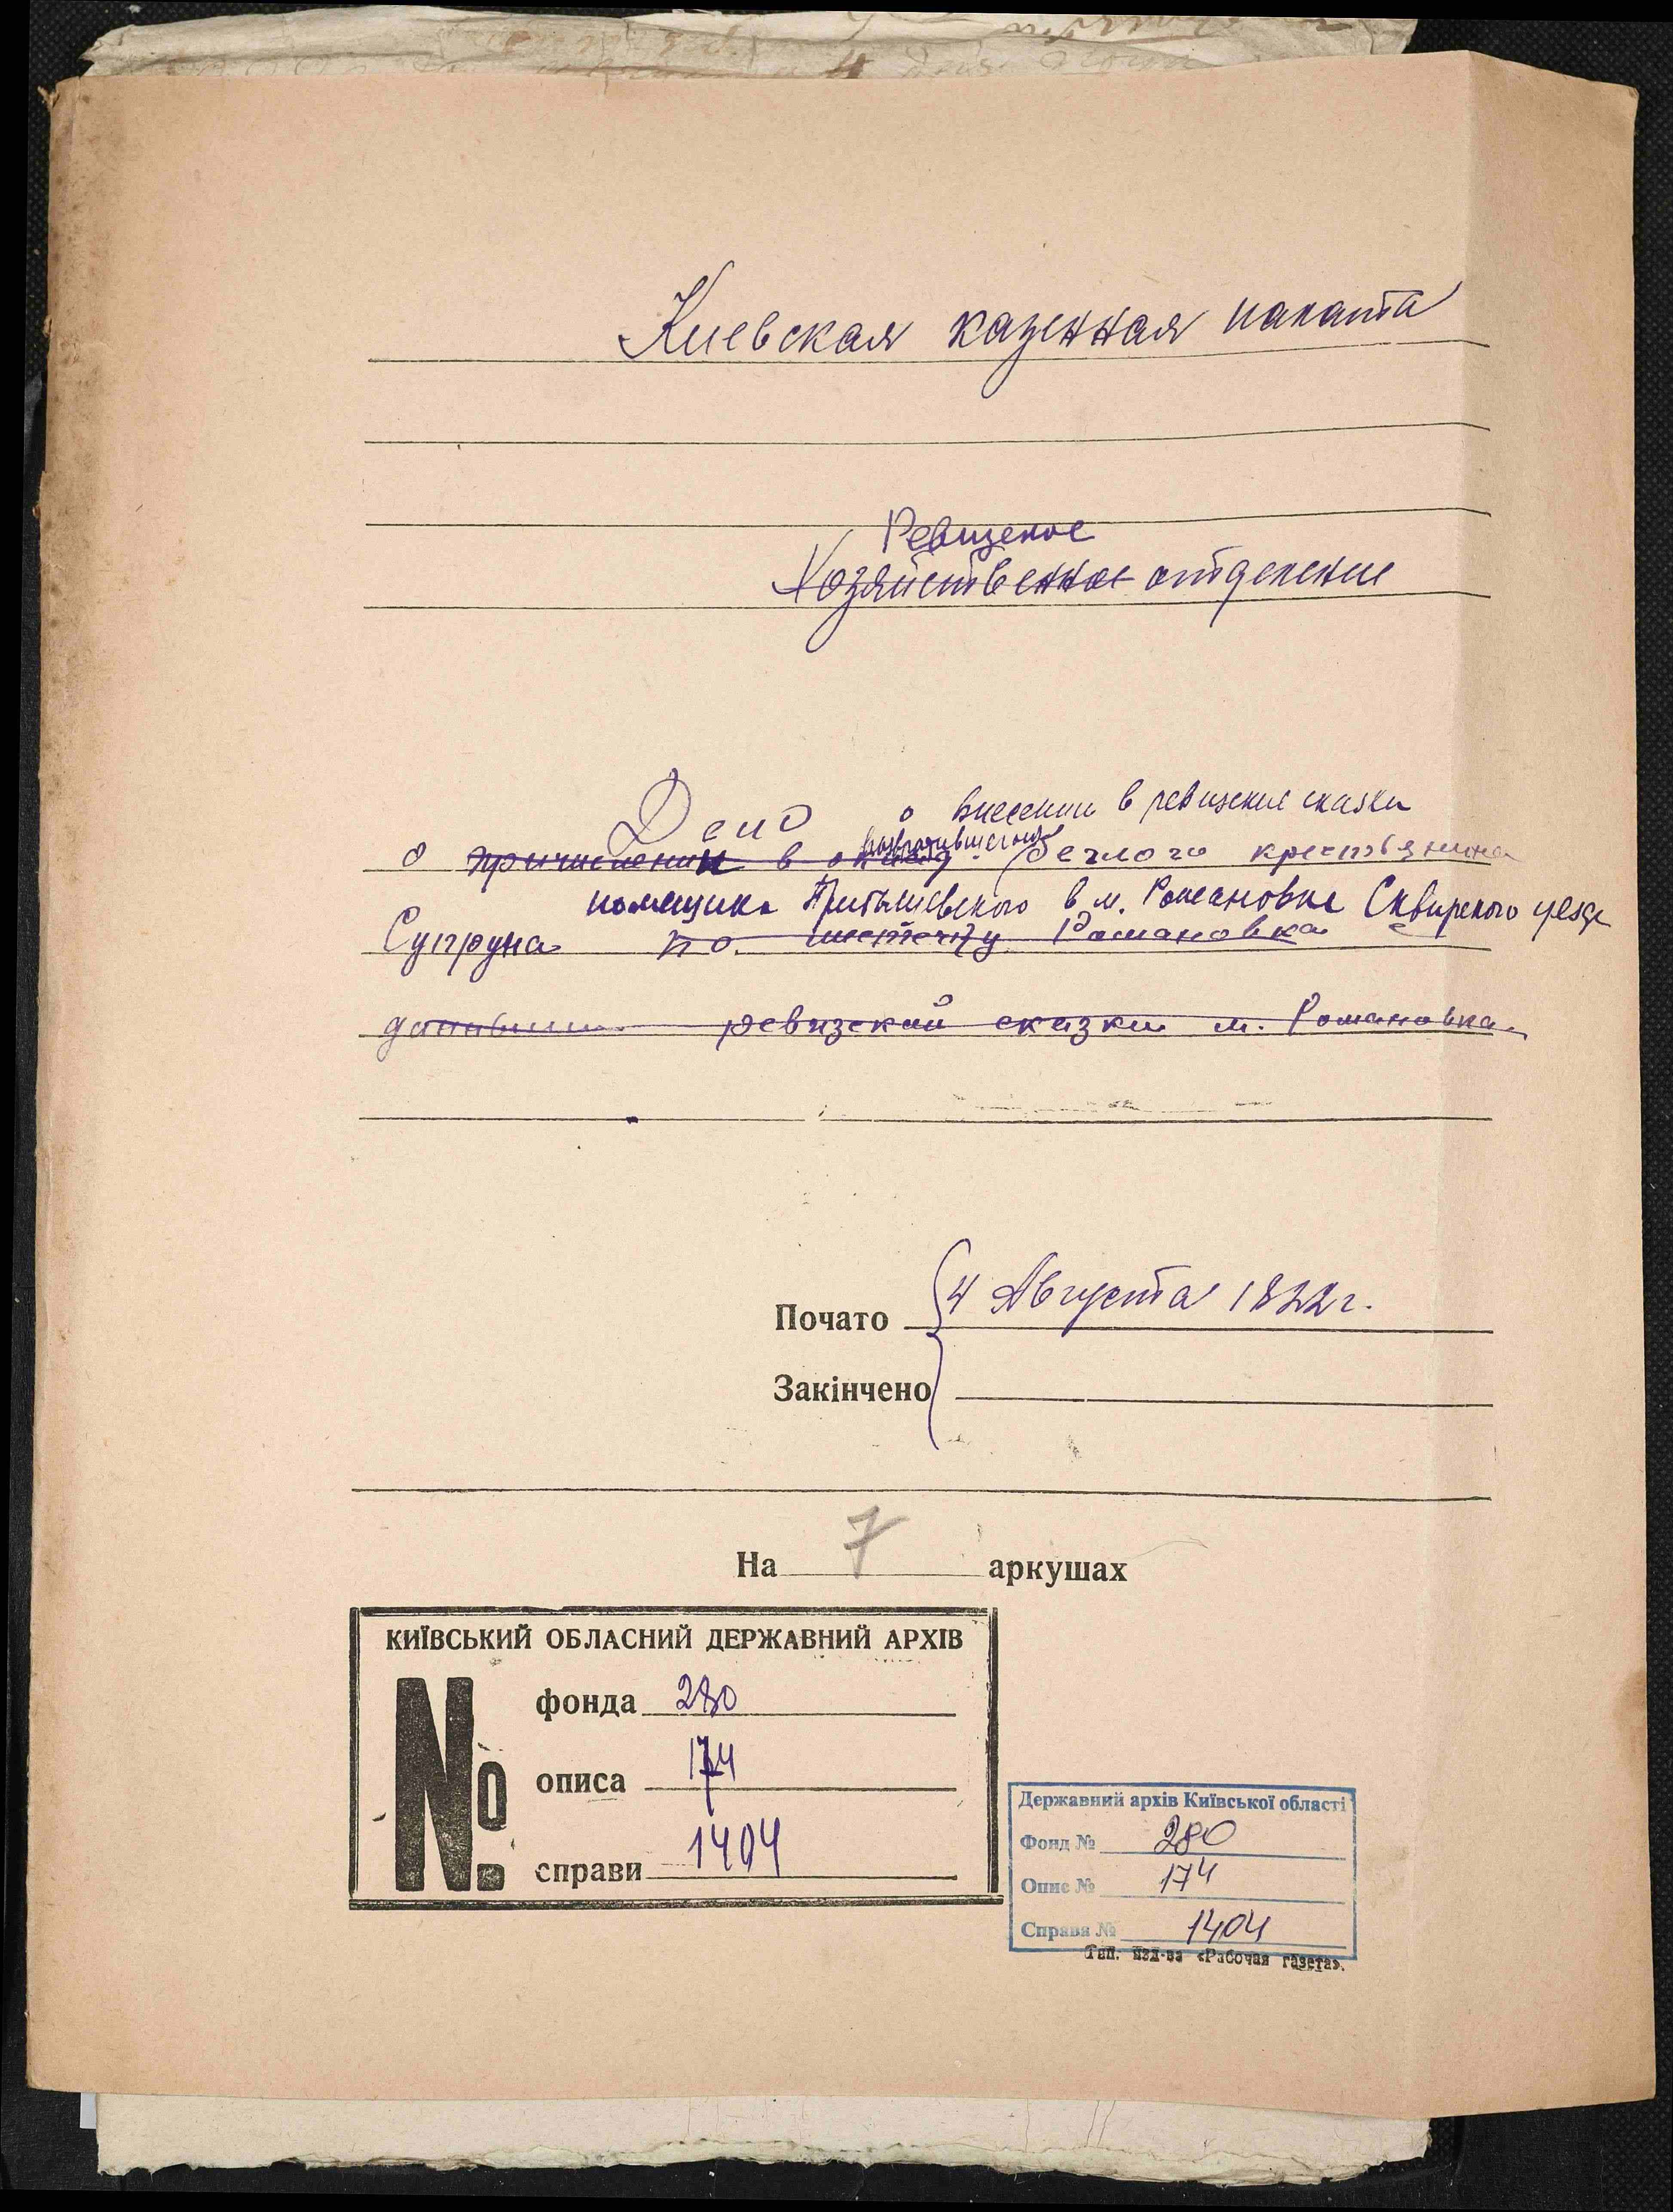 Киевская казенная палата
Ревизское
Хозяйственное отделение
Дело о внесении в ревизские сказки
возвратившегося
о причислении в оклад беглого крестьянина
помещика в м. Романовке Сквирского уезда
Супруна по местечку Романовка
ревизской сказки м. Романовка
Почато 4 Августа 1822 г.
Закінчено
На 7 аркушах
КИЇВСЬКИЙ ОБЛАСНИЙ ДЕРЖАВНИЙ АРХІВ
№
фонда 280
описа 174
справи 1404
Державний архів Київської області
Фонд № 280
Опис № 174
Справа № 1404
Тип. изд-ва «Рабочая газета».